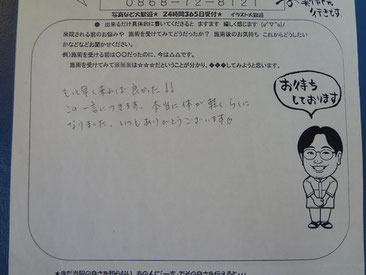 0868-72-8121
行きです。
写真など大歓迎★ 24時間365日受付★ イラスト大歓迎
● 出来るだけ具体的に書いてくださると ますます 嬉しく感じます (o^∇^o)ﾉ
来院される前のお悩みや 施術を受けてみてどうだったか? 施術後のお気持ち これからどうしたい
かなどなどお聞かせください。
例)施術を受ける前は○○だったのに、今は△△です。
施術を受けてみて※※※は☆☆☆だということが分かり、◆◆◆してみようと思います。
もっと早く来れば良かった!!
この一言につきます。本当に体が軽く、らくに
なりました。いつもありがとうございます
お待ち
しております